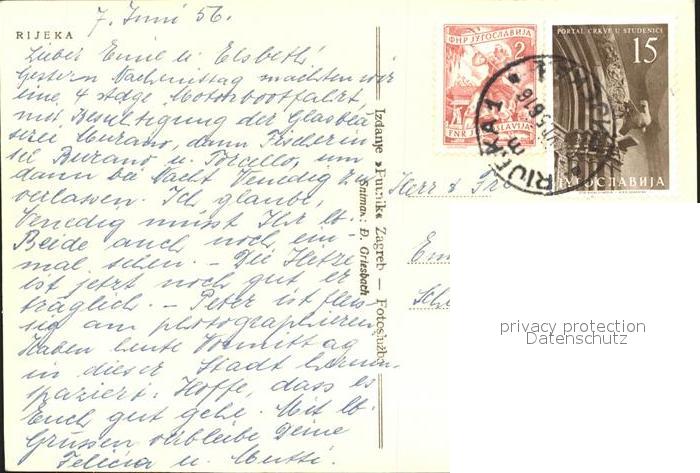 7. Juni 56.
RIJEKA
Lieber Emil u. Elsbeth!
Gestern Nachmittag machten wir
eine 4 stdge. Motorbootfahrt
mit Besichtigung der Glasblä-
serei Murano, dann Fischerin-
sel Burano u. Torcello, um
dann bei Nacht Venedig zu
verlassen. Ich glaube,
Venedig müsst Ihr lb.
Beide auch noch ein-
mal sehen. – Die Hetze
ist jetzt noch gut er
träglich. – Peter ist fleis-
sig am photographieren
Haben heute Vormittag
in dieser Stadt herum-
spaziert. Hoffe, dass es
Euch gut gehe. Mit lb.
Grüssen verbleibe Deine
Felicia u. Mutti.
Izdanje »Putnik« Zagreb — Fotoslužba
Snimak: Đ. Griesbach
ФНР ЈУГОСЛАВИЈА
2
FNR JUGOSLAVIJA
PORTAL CRKVE U STUDENICI
15
JYГОСЛАВИЈА
RIJEKA 1
Herr & Fr
Em
Sch
privacy protection
Datenschutz